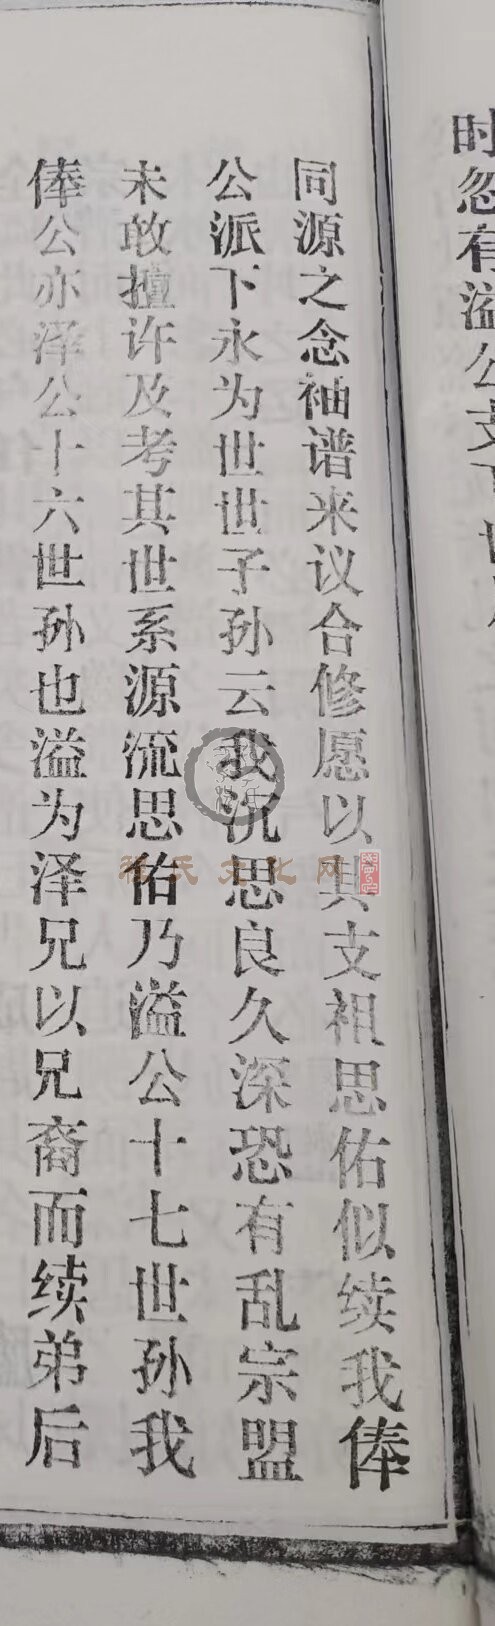 时忽有溢公支下世
同源之念袖谱来议合修愿以其支祖思佑似续我俸
公派下永为世世子孙云我沉思良久深恐有乱宗盟
未敢擅许及考其世系源流思佑乃溢公十七世孙我
俸公亦泽公十六世孙也溢为泽兄以兄裔而续弟后
氏文化网